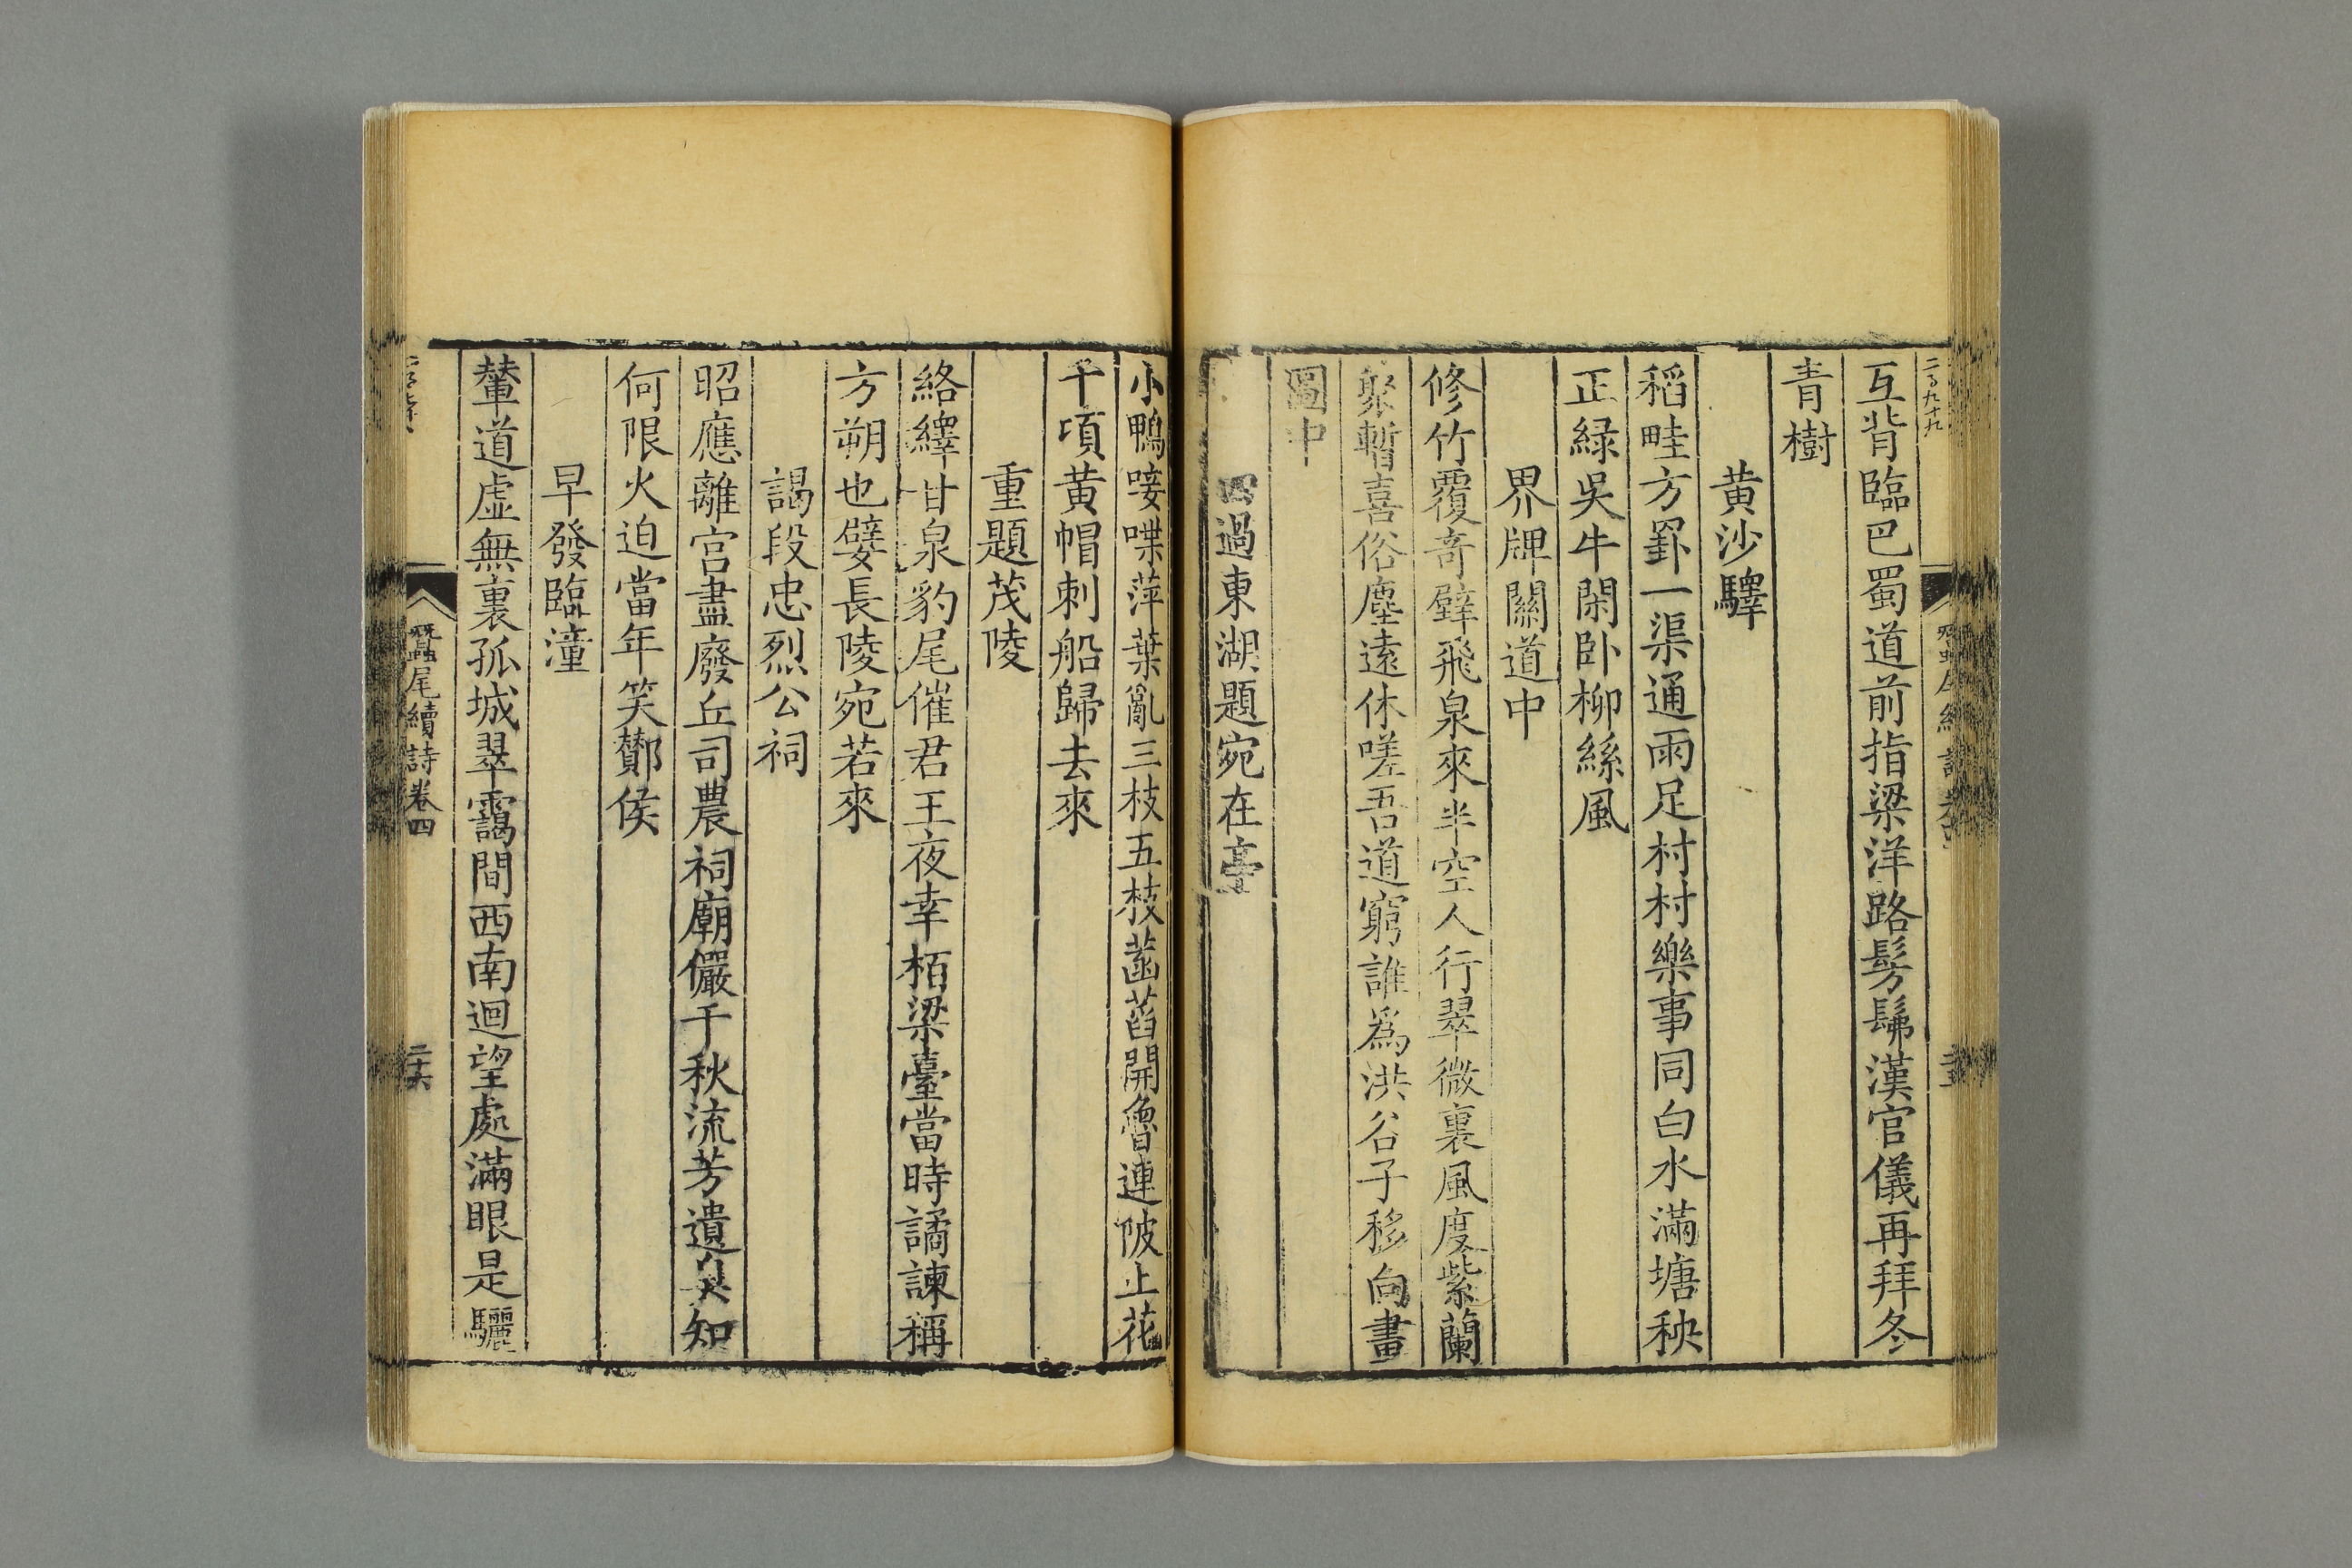 二百九十九
互背臨巴蜀道前指梁洋路髣髴漢官儀再拜冬
青樹
黄沙驛
稻畦方罫一渠通雨足村村樂事同白水滿塘秧
正緑吳牛閑卧柳絲風
界牌關道中
修竹覆奇壁飛泉來半空人行翠微裏風度紫蘭
叢暫喜俗塵遠休嗟吾道窮誰爲洪谷子移向畫
圖中
四過東湖題宛在亭
小鴨唼喋萍葉亂三枝五枝菡萏開魯連陂上花
千頃黄帽刺船歸去來
重題茂陵
絡繹甘泉豹尾催君王夜幸栢梁臺當時譎諫稱
方朔也嬖長陵宛若來
謁段忠烈公祠
昭應離宫盡廢丘司農祠廟儼千秋流芳遺臭知
何限火迫當年笑酇侯
早發臨潼
輦道虚無裏孤城翠靄間西南迴望處滿眼是驪
蠶尾續詩卷四
二十六